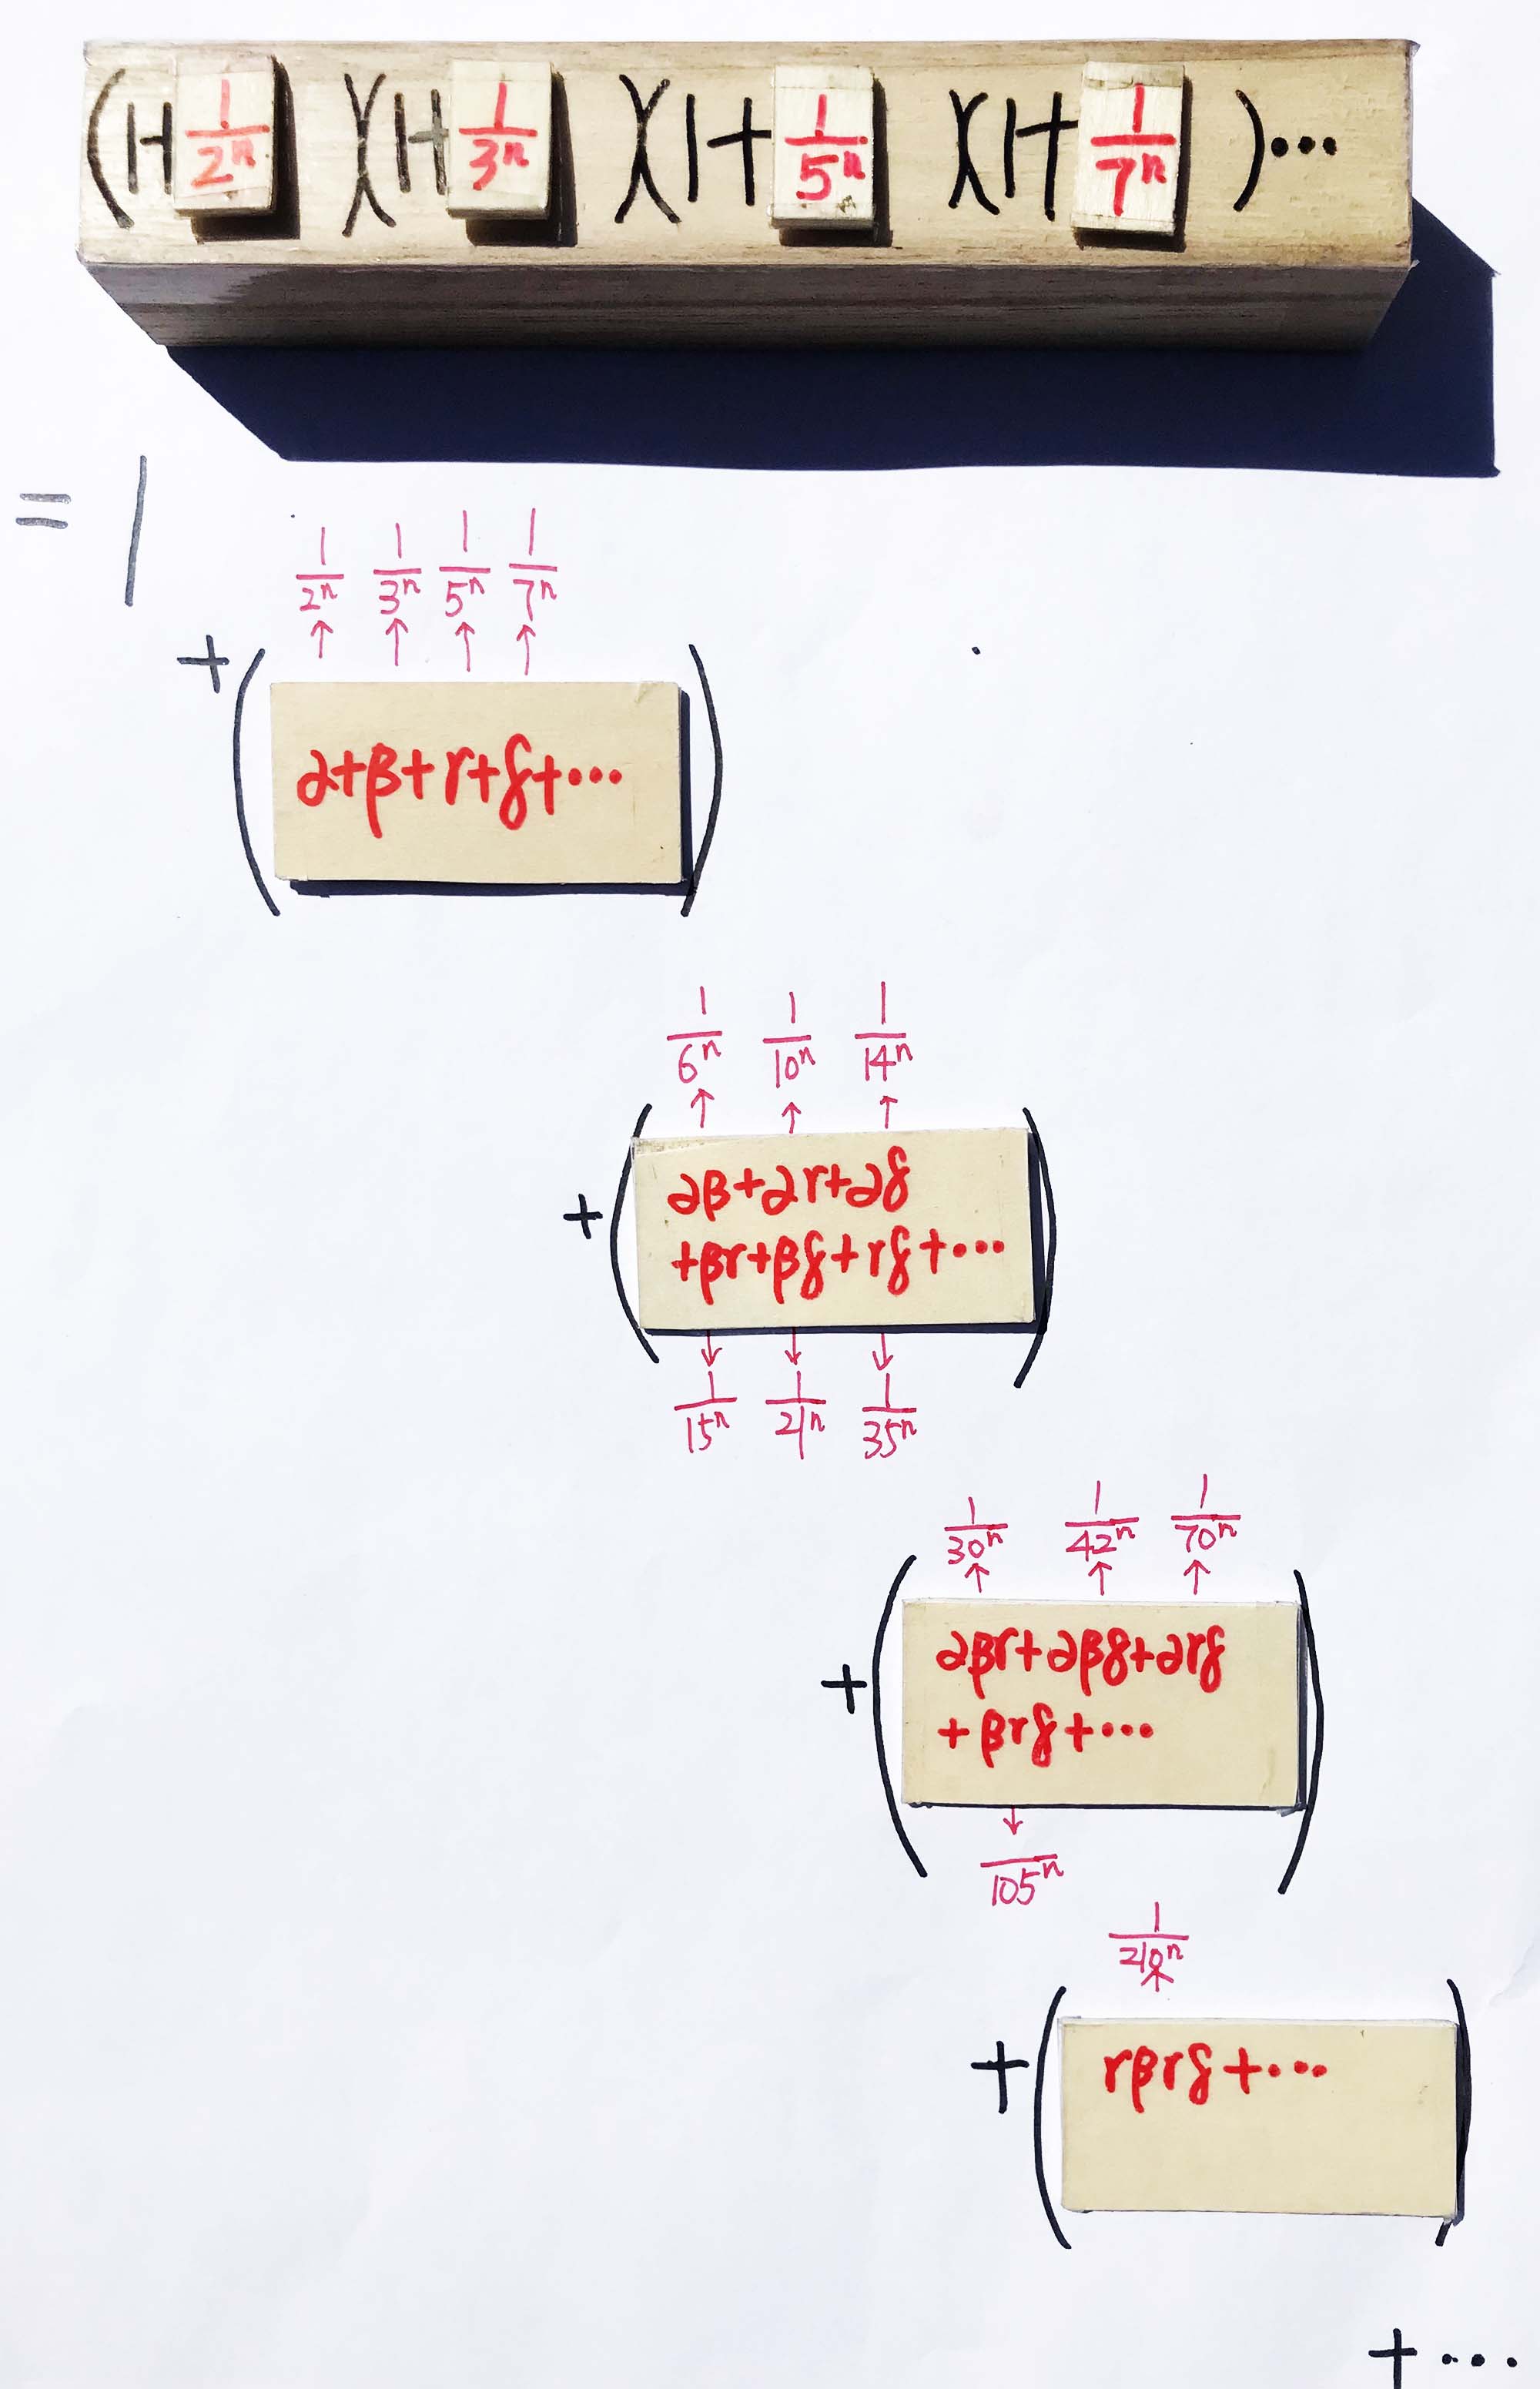 (1+1/2ⁿ)(1+1/3ⁿ)(1+1/5ⁿ)(1+1/7ⁿ)···
= 1
1/2ⁿ 1/3ⁿ 1/5ⁿ 1/7ⁿ
↑ ↑ ↑ ↑
+(α+β+γ+δ+···)
1/6ⁿ 1/10ⁿ 1/14ⁿ
↑ ↑ ↑
+(αβ+αγ+αδ
+βγ+βδ+γδ+···)
↓ ↓ ↓
1/15ⁿ 1/21ⁿ 1/35ⁿ
1/30ⁿ 1/42ⁿ 1/70ⁿ
↑ ↑ ↑
+(αβγ+αβδ+αγδ
+βγδ+···)
↓
/105ⁿ
1/210ⁿ
↑
+(γβγδ+···)
+···